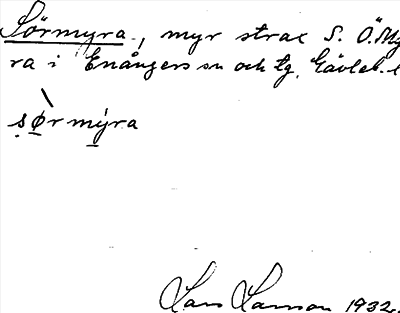 Sörmyra, myr strax S. Ö. My
ra i Enångers sn och tg. Gävleb. l
sørmyra
Lars Larsson 1932.